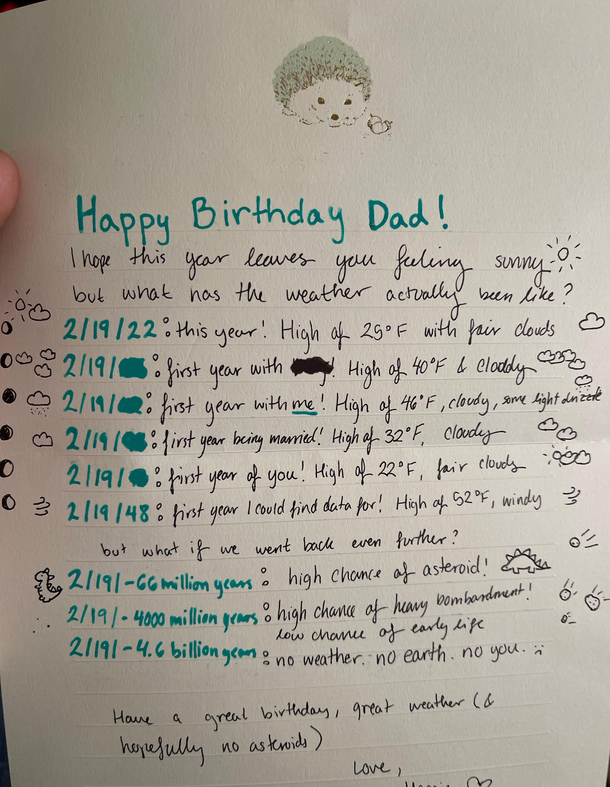 Happy Birthday Dad!
I hope this year leaves you feeling sunny
but what has the weather actually been like?
2/19/22: this year! High of 25°F with fair clouds
2/19/ : first year with ! High of 40°F & cloddy
2/19/ : first year with me! High of 46°F, cloudy, some light drizzle
2/19/ : first year being married! High of 32°F, cloudy
2/19/ : first year of you! High of 22°F, fair clouds
2/19/48: first year I could find data for! High of 52°F, windy
but what if we went back even further?
2/19/-66 million years: high chance of asteroid!
2/19/-4000 million years: high chance of heavy bombardment!
low chance of early life
2/19/-4.6 billion years: no weather. no earth. no you. :(
Have a great birthday, great weather (&
hopefully no asteroids)
Love,